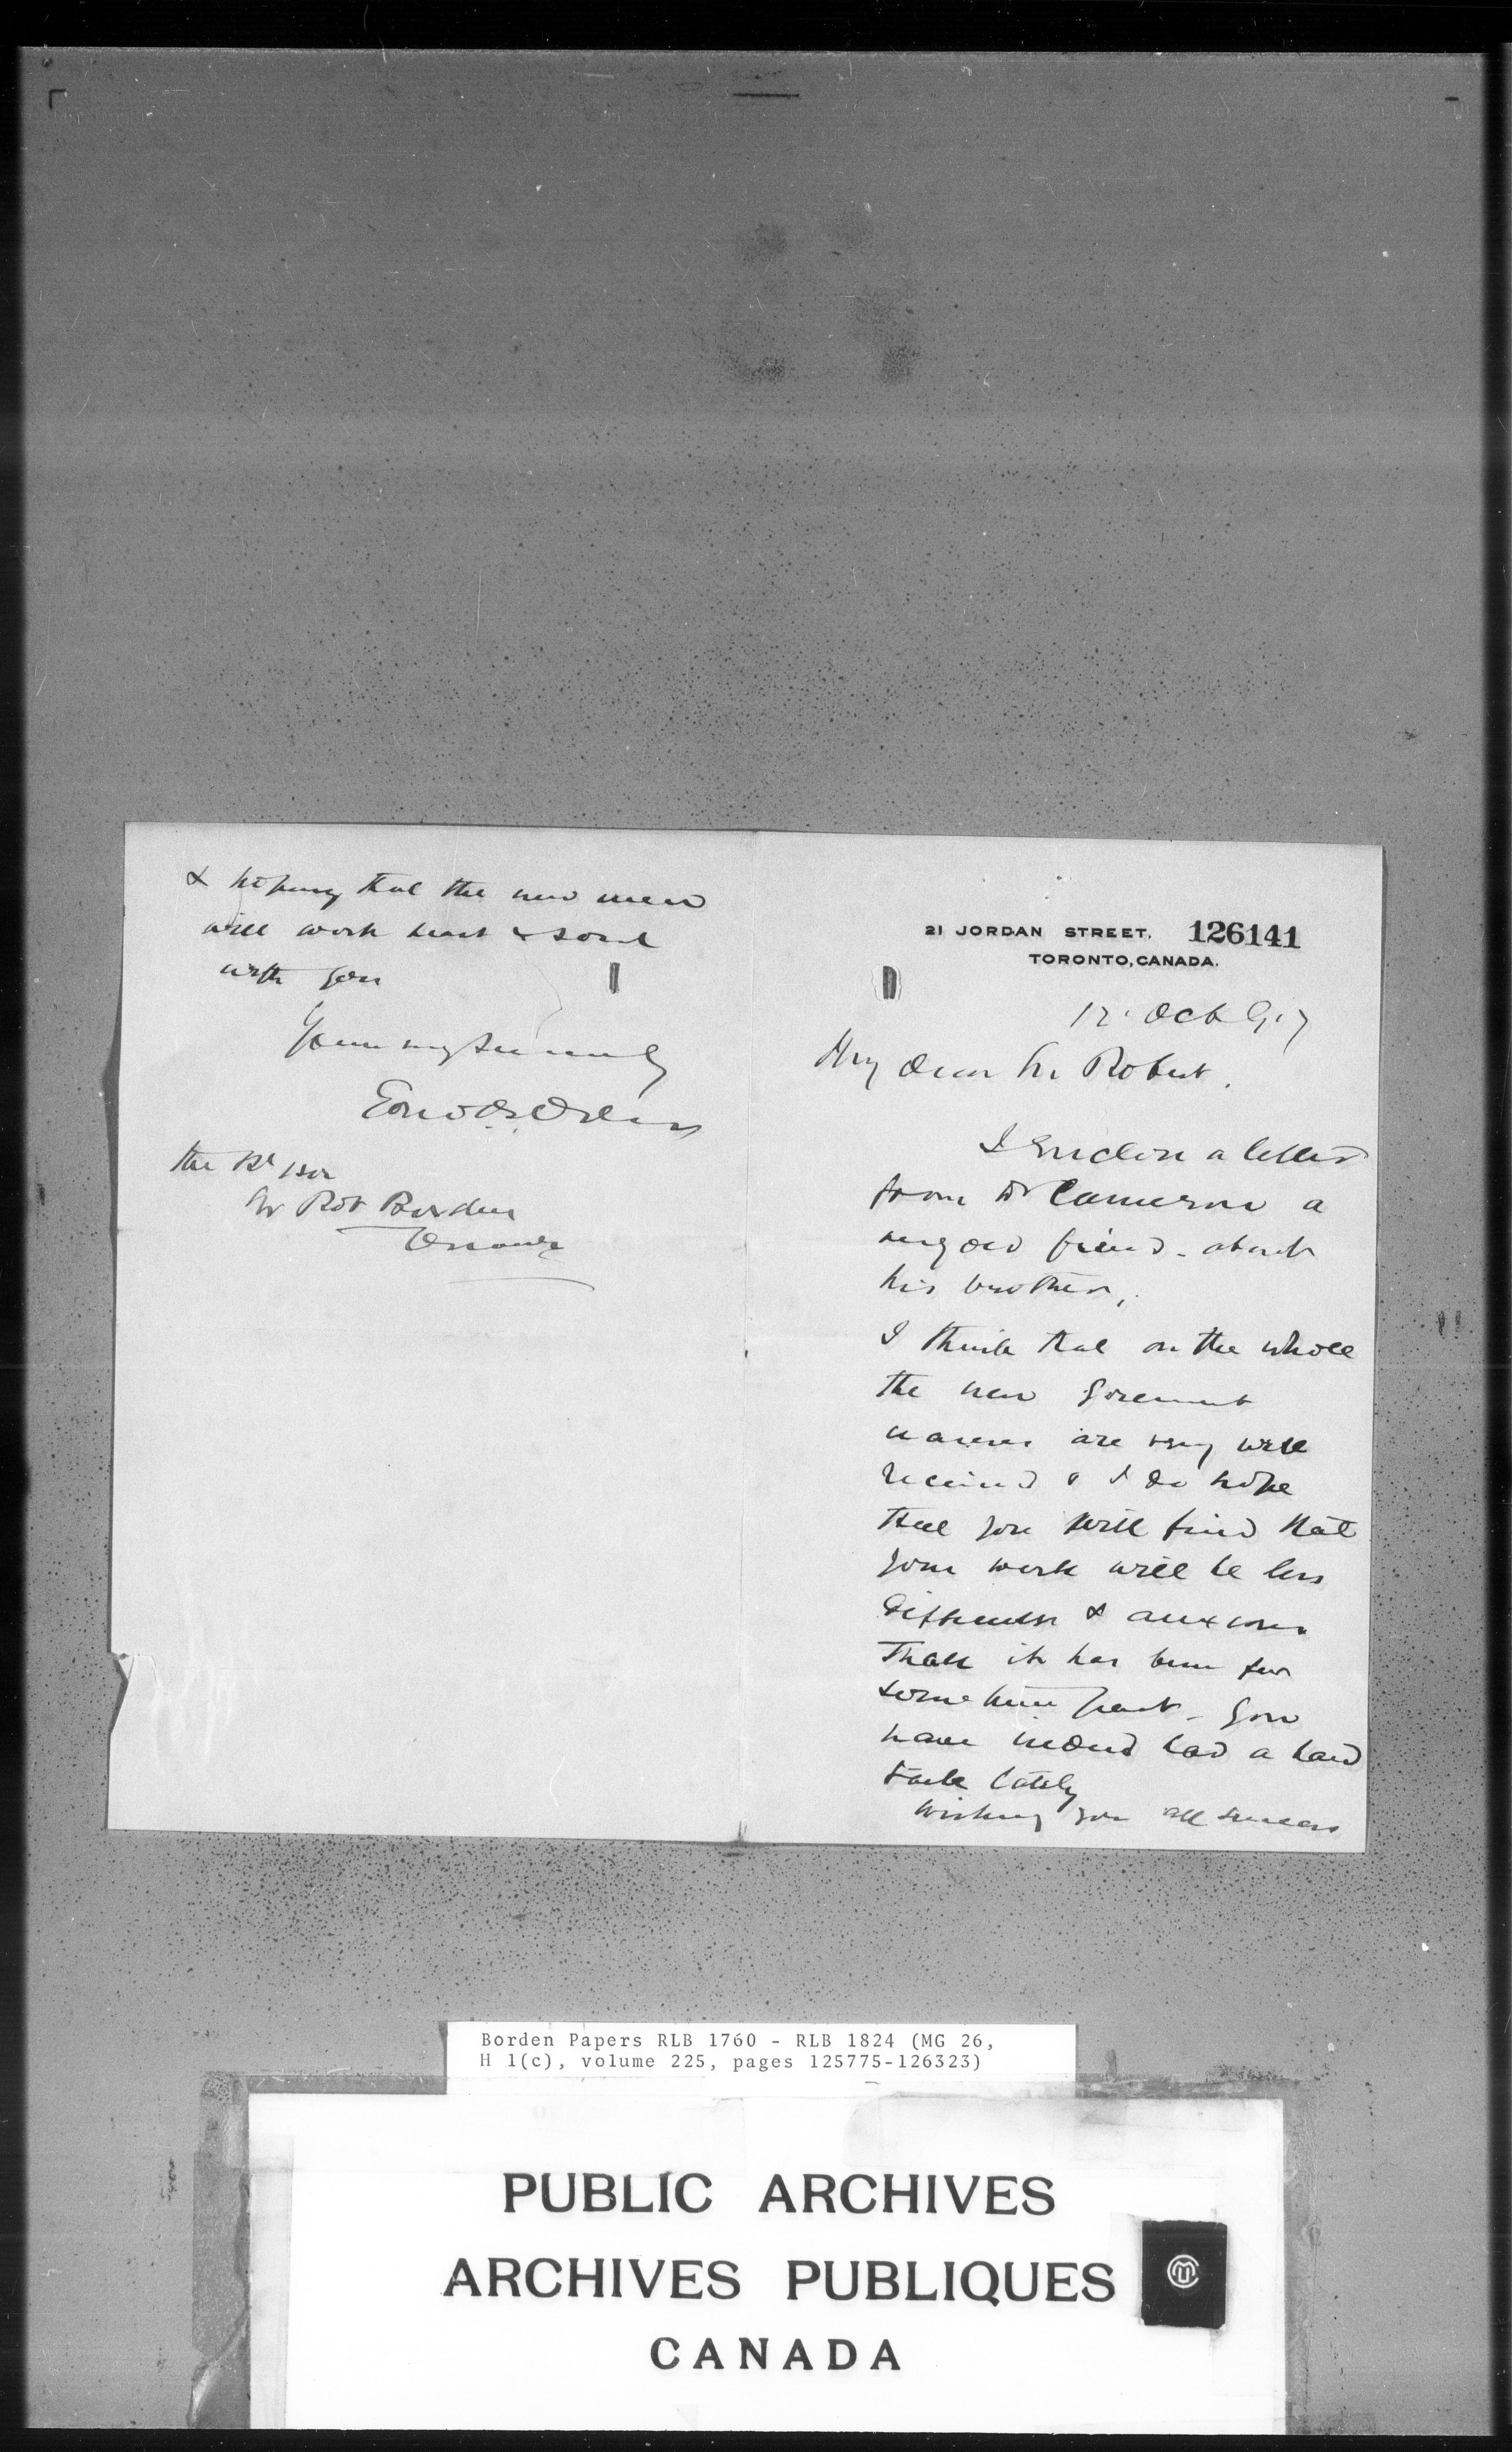 21 JORDAN STREET. 126141
TORONTO, CANADA.
12. Oct 917
My dear Sir Robert.
I enclose a letter
from Dr Cameron a
very old friend - about
his brother,
I think that on the whole
the new Goverment
names are very well
received & I do hope
that you will find that
your work will be less
difficult & anxious
than it has been for
some time past - You
have indeed had a hard
task lately
Wishing you all success
& hoping that the new men
will work heart & soul
with you
Yours very sincerely
Edmd B. Osler
The Rt Hon
Sir Robt Borden
Ottawa
Borden Papers RLB 1760 - RLB 1824 (MG 26,
H 1(c), volume 225, pages 125775-126323)
PUBLIC ARCHIVES
ARCHIVES PUBLIQUES
CANADA